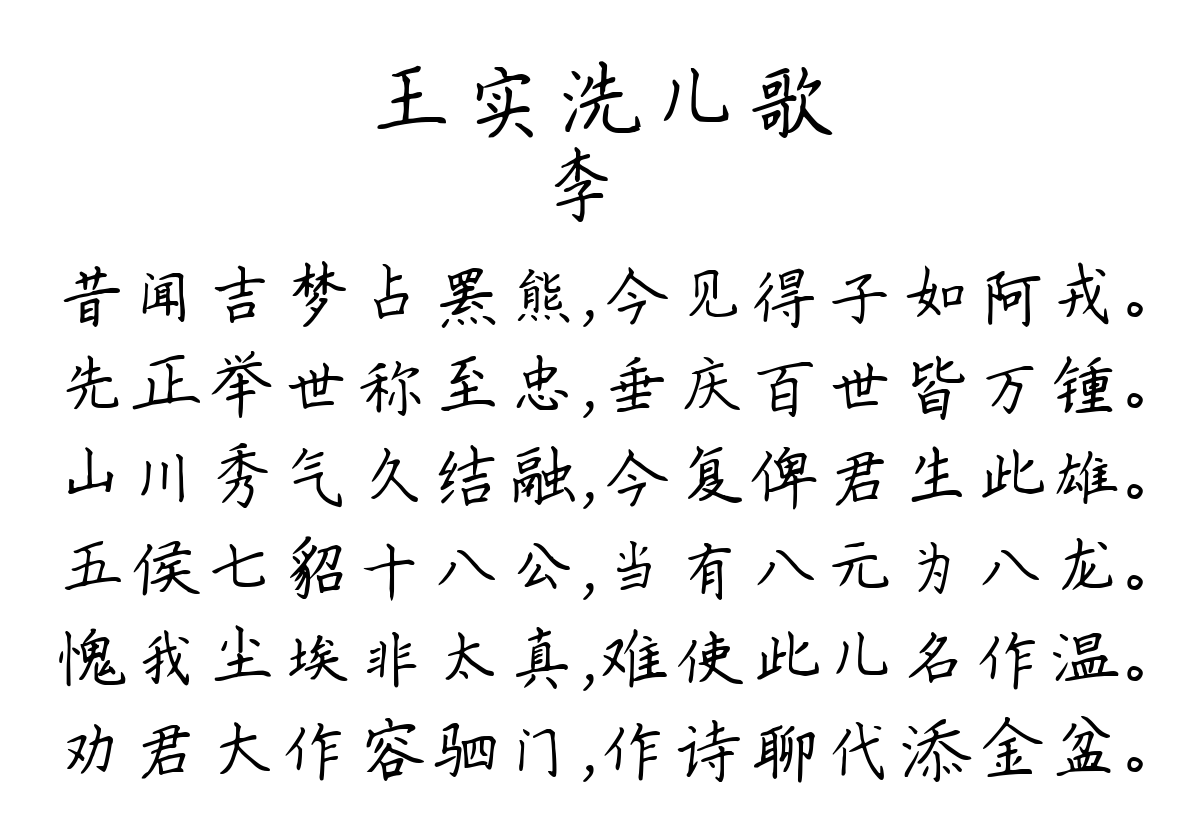 王实洗儿歌
李
昔闻吉梦占罴熊,今见得子如阿戎。
先正举世称至忠,垂庆百世皆万锺。
山川秀气久结融,今复俾君生此雄。
五侯七貂十八公,当有八元为八龙。
愧我尘埃非太真,难使此儿名作温。
劝君大作容驷门,作诗聊代添金盆。